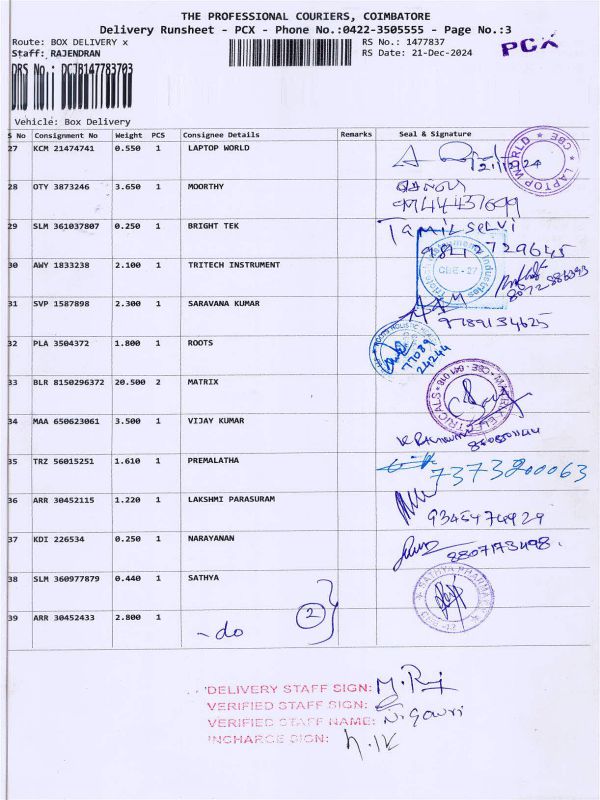 THE PROFESSIONAL COURIERS, COIMBATORE
Delivery Runsheet - PCX - Phone No.:0422-3505555 - Page No.:3
Route: BOX DELIVERY x RS No.: 1477837 PCX
Staff: RAJENDRAN RS Date: 21-Dec-2024
DRS No.: DCJB147783703
Vehicle: Box Delivery
S No Consignment No Weight PCS Consignee Details Remarks Seal & Signature
27 KCM 21474741 0.550 1 LAPTOP WORLD LAPTOP WORLD CBE
28 OTY 3873246 3.650 1 MOORTHY
9744437699
29 SLM 361037807 0.250 1 BRIGHT TEK Tamilselvi
30 AWY 1833238 2.100 1 TRITECH INSTRUMENT CBE - 27
31 SVP 1587898 2.300 1 SARAVANA KUMAR 9789134625
32 PLA 3504372 1.800 1 ROOTS 77089
24244
33 BLR 8150296372 20.500 2 MATRIX
34 MAA 650623061 3.500 1 VIJAY KUMAR
35 TRZ 56015251 1.610 1 PREMALATHA 7373200063
36 ARR 30452115 1.220 1 LAKSHMI PARASURAM
9345474929
37 KDI 226534 0.250 1 NARAYANAN 8807173498.
38 SLM 360977879 0.440 1 SATHYA SATHYA PHARMA
39 ARR 30452433 2.800 1 - do 2
DELIVERY STAFF SIGN: M. Raj
VERIFIED STAFF SIGN:
VERIFIED STAFF NAME: N. Gowri
INCHARGE SIGN: